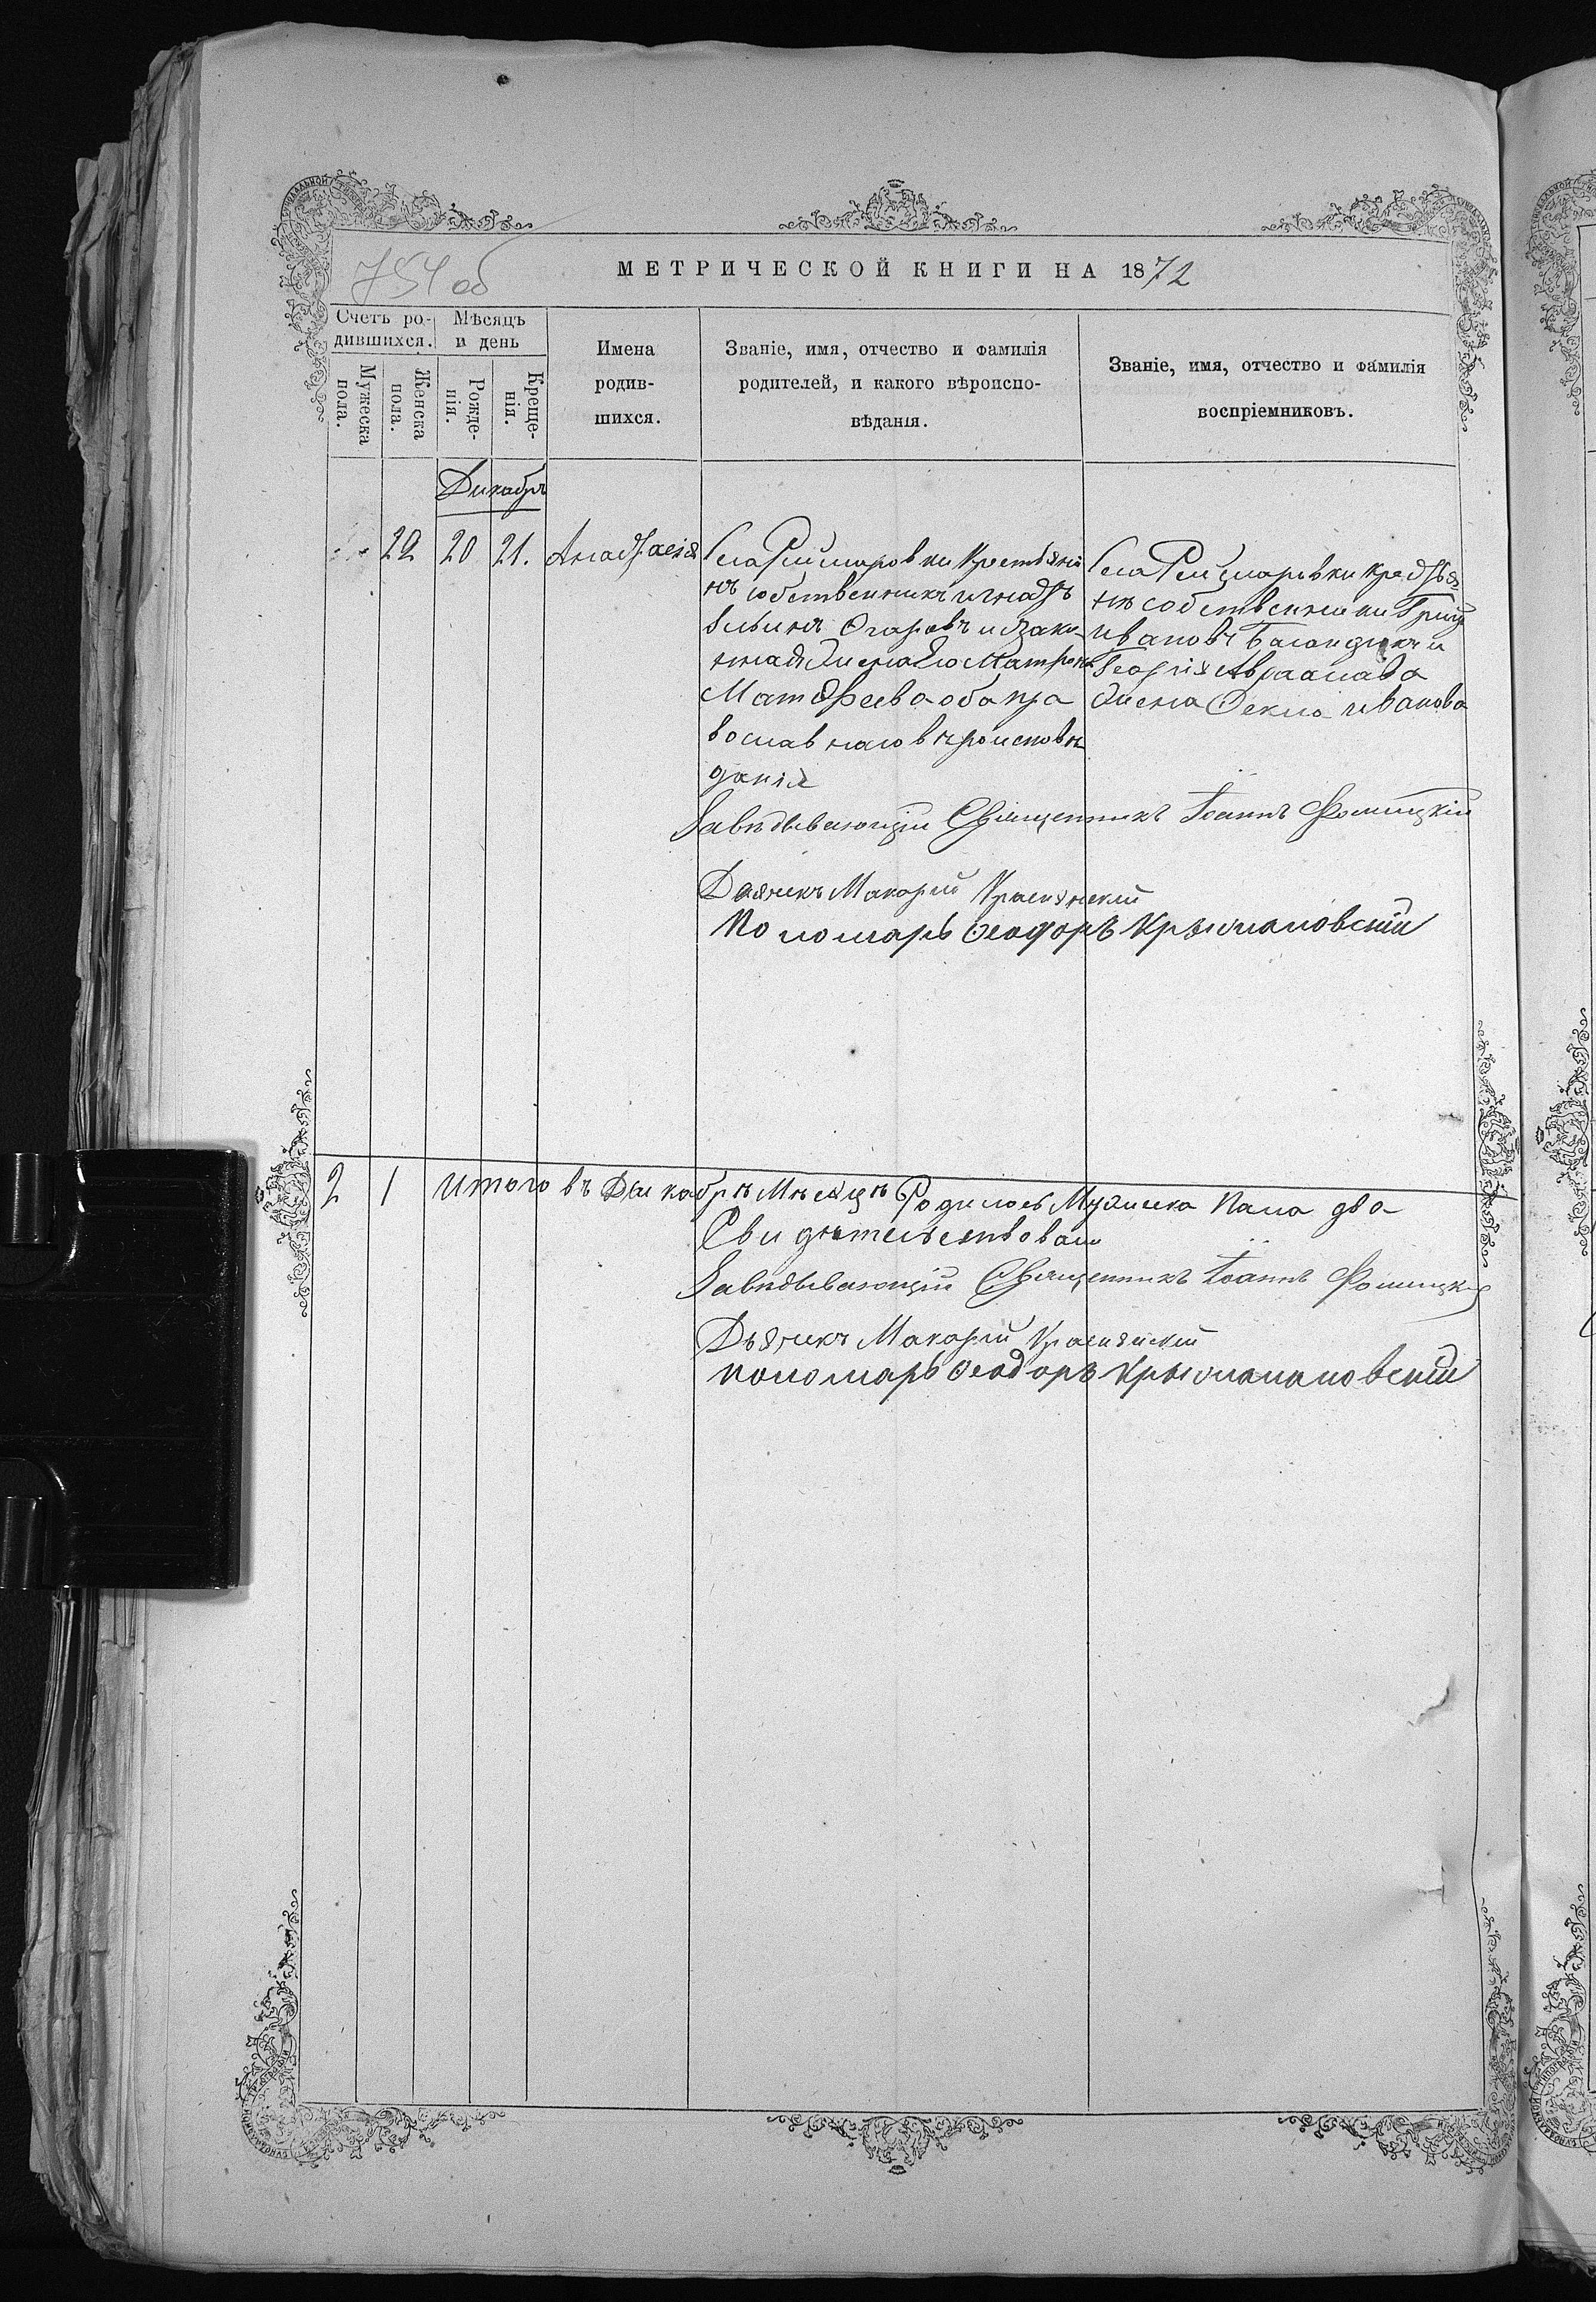 754 об
МЕТРИЧЕСКОЙ КНИГИ НА 1872
Счетъ ро-
дившихся.
Мѣсяцъ
и день
Мужеска
пола.
Женска
пола.
Рожде-
нія.
Креще-
нія.
Имена
родив-
шихся.
Званіе, имя, отчество и фамилія
родителей, и какого вѣроиспо-
вѣданія.
Званіе, имя, отчество и фамилія
воспріемниковъ.
Декабрь
22 20 21. Анастасія
Села Рейшаровки Крестьяни
нъ собственникъ игнатъ
Ильинъ Огаровъ и Зако
нная Жена Его Матрона
Матфеева оба пра
вославнаго вѣроисповѣ
данія
Села Реишаровки крестья
нѣ собственники Григ
Ивановъ и
Георгія Авраамова
Жена Фекла иванова
Завѣдывающій Священникъ Іоаннъ Фомицкій
Дьячекъ Макарій Краснянскій
Пономарь Ѳеодоръ
2 1 Итого въ Декабрѣ Мѣсяцѣ Родилось Мужеска Пола два
Свидѣтельствовали
Завѣдывающій Священникъ Іоаннъ Фомицкій
Дьячекъ Макарій Краснянскій
пономарь Ѳеодоръ